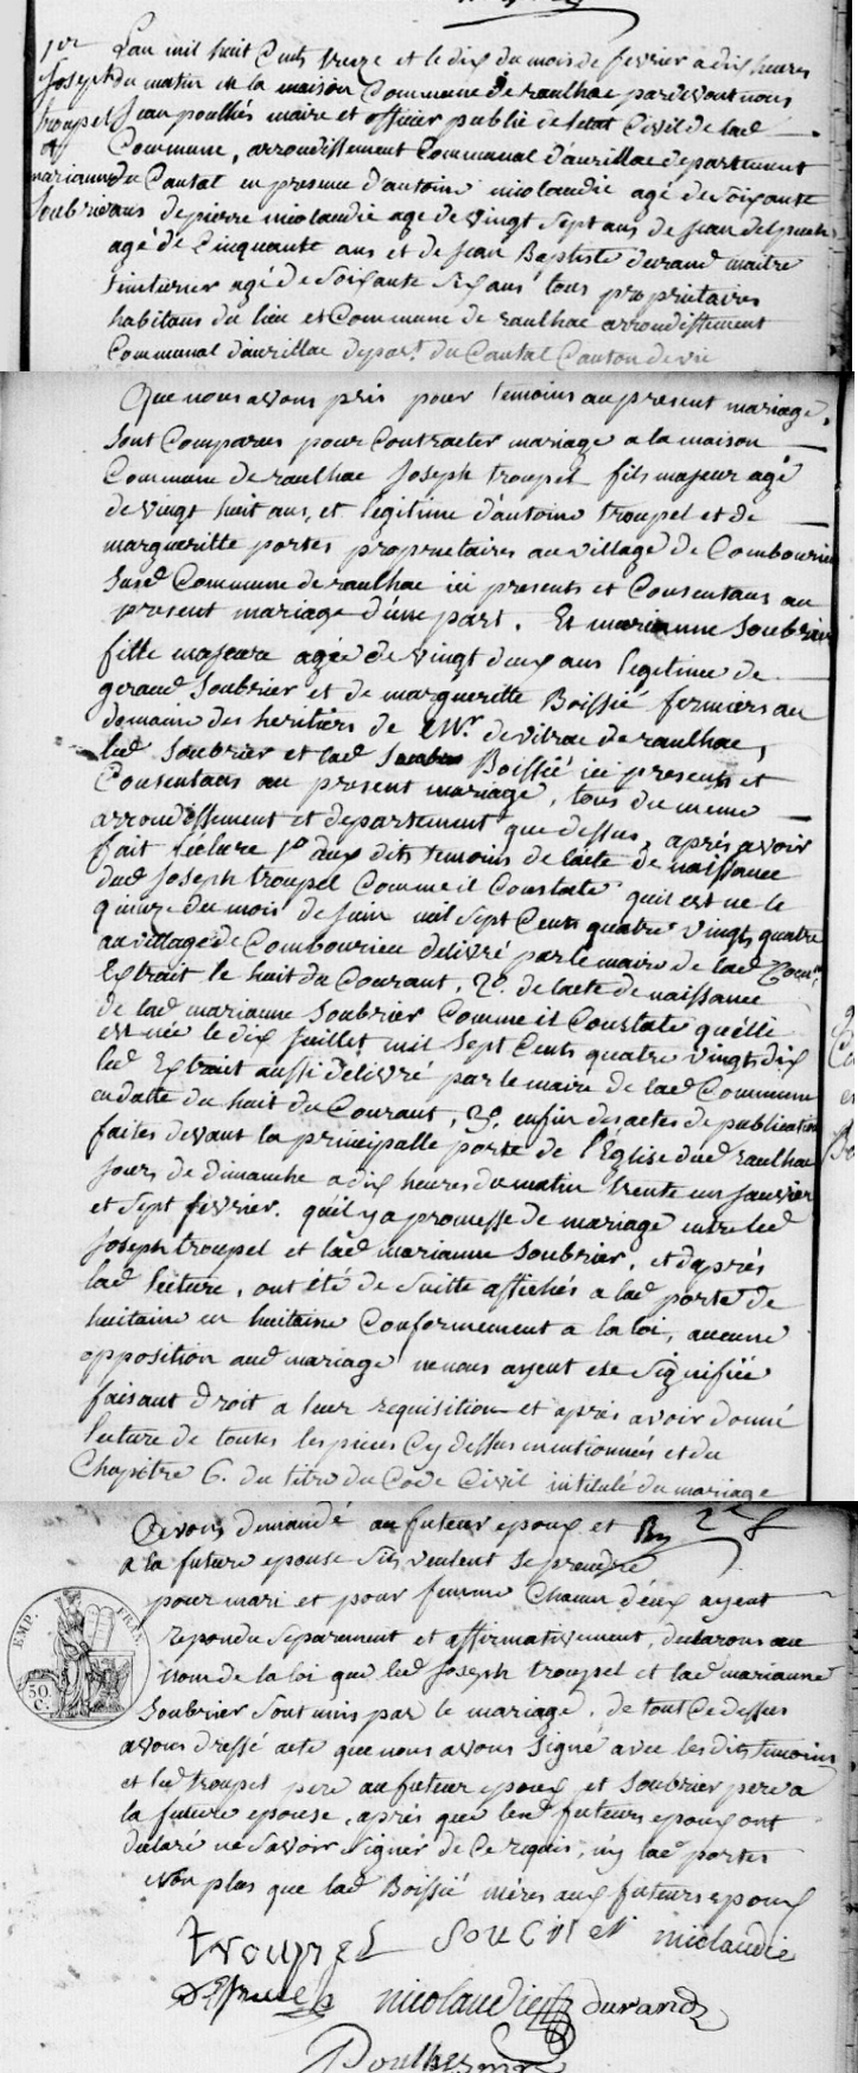 1er
Joseph
troupel
et
marianne
Soubrier
L'an mil huit Cents treize et le dix du mois de fevrier a dix heures
du matin et la maison Commune de raulhac pardevant nous
Jean poulhés maire et officier public de letat Civil de lad
Commune, arrondissement Communal d'aurillac departement
du Cantal en presence d'antoine nicolaudie agé de soixante
ans de pierre nicolaudie age de vingt sept ans de Jean delpuech
agé de Cinquante ans et de Jean Baptiste durand maitre
tinturier agé de soixante six ans tous proprietaires
habitans du lieu et Commune de raulhac arrondissement
Communal d'aurillac depart. du Cantal Canton de vic
Que nous avons pris pour temoins au present mariage,
Sont Comparus pour Contracter mariage a la maison
Commune de raulhac Joseph troupel fils majeur agé
de vingt huit ans, et legitime d'antoine troupel et de
margueritte portes proprietaires au village de Combourieu
susd Commune de raulhac ici presents et Consentans au
present mariage d'une part. Et marianne Soubrier
fille majeure agée de vingt deux ans legitime de
geraud Soubrier et de margueritte Boissié fermiers au
domaine des heritiers de Mr. de vitrac de raulhac,
led Soubrier et lad Boissié ici presents et
Consentans au present mariage, tous du meme
arrondissement et departement que dessus, aprés avoir
fait lecture 1o aux dits temoins de lacte de naissance
dud Joseph troupel Comme il Constate quil est ne le
quinze du mois de Juin mil sept Cents quatre vingts quatre
au village de Combourieu delivré par le maire de lad Comne.
Extrait le huit du Courant, 2o. de lacte de naissance
de lad marianne Soubrier Comme il Constate qu'elle
est née le dix Juillet mil sept Cents quatre vingts dix
led Extrait aussi delivré par le maire de lad Commune
en datte du huit du Courant, 3o. enfin des actes de publication
faites devant la principalle porte de l'Eglise dud raulhac
Jours de dimanche a dix heures du matin trente un Janvier
et sept fevrier. qu'il y a promesse de mariage entre led
Joseph troupel et lad marianne Soubrier, et daprés
lad lecture, ont été de suitte affichés a lad porte de
huitaine en huitaine Conformement a la loi, aucune
opposition aud mariage ne nous ayent ete signifiée
faisant droit a leur requisition et aprés avoir donné
lecture de toutes les pieces Cy dessus mentionnées et du
Chapitre 6. du titre du Code Civil intitulé du mariage
avons demandé au futeur epoux et
a la future epouse sils veulent se prendre
pour mari et pour femme Chacun d'eux ayent
repondu separement et affirmativement, declarons au
nom de la loi que led Joseph troupel et lad marianne
Soubrier sont unis par le mariage. de tout Ce dessus
avons dressé acte que nous avons signé avec les dits temoins
et led troupel pere au futeur epoux et Soubrier pere a
la future epouse, aprés que lesd futeurs epoux ont
declaré ne savoir signer de Ce requis, ny lad portes
non plus que lad Boissié méres aux futeurs epoux
EMP. FRAS.
50
C.
troupel Soubrier nicolaudie
Delpuech nicolaudie durand
Poulhes mre